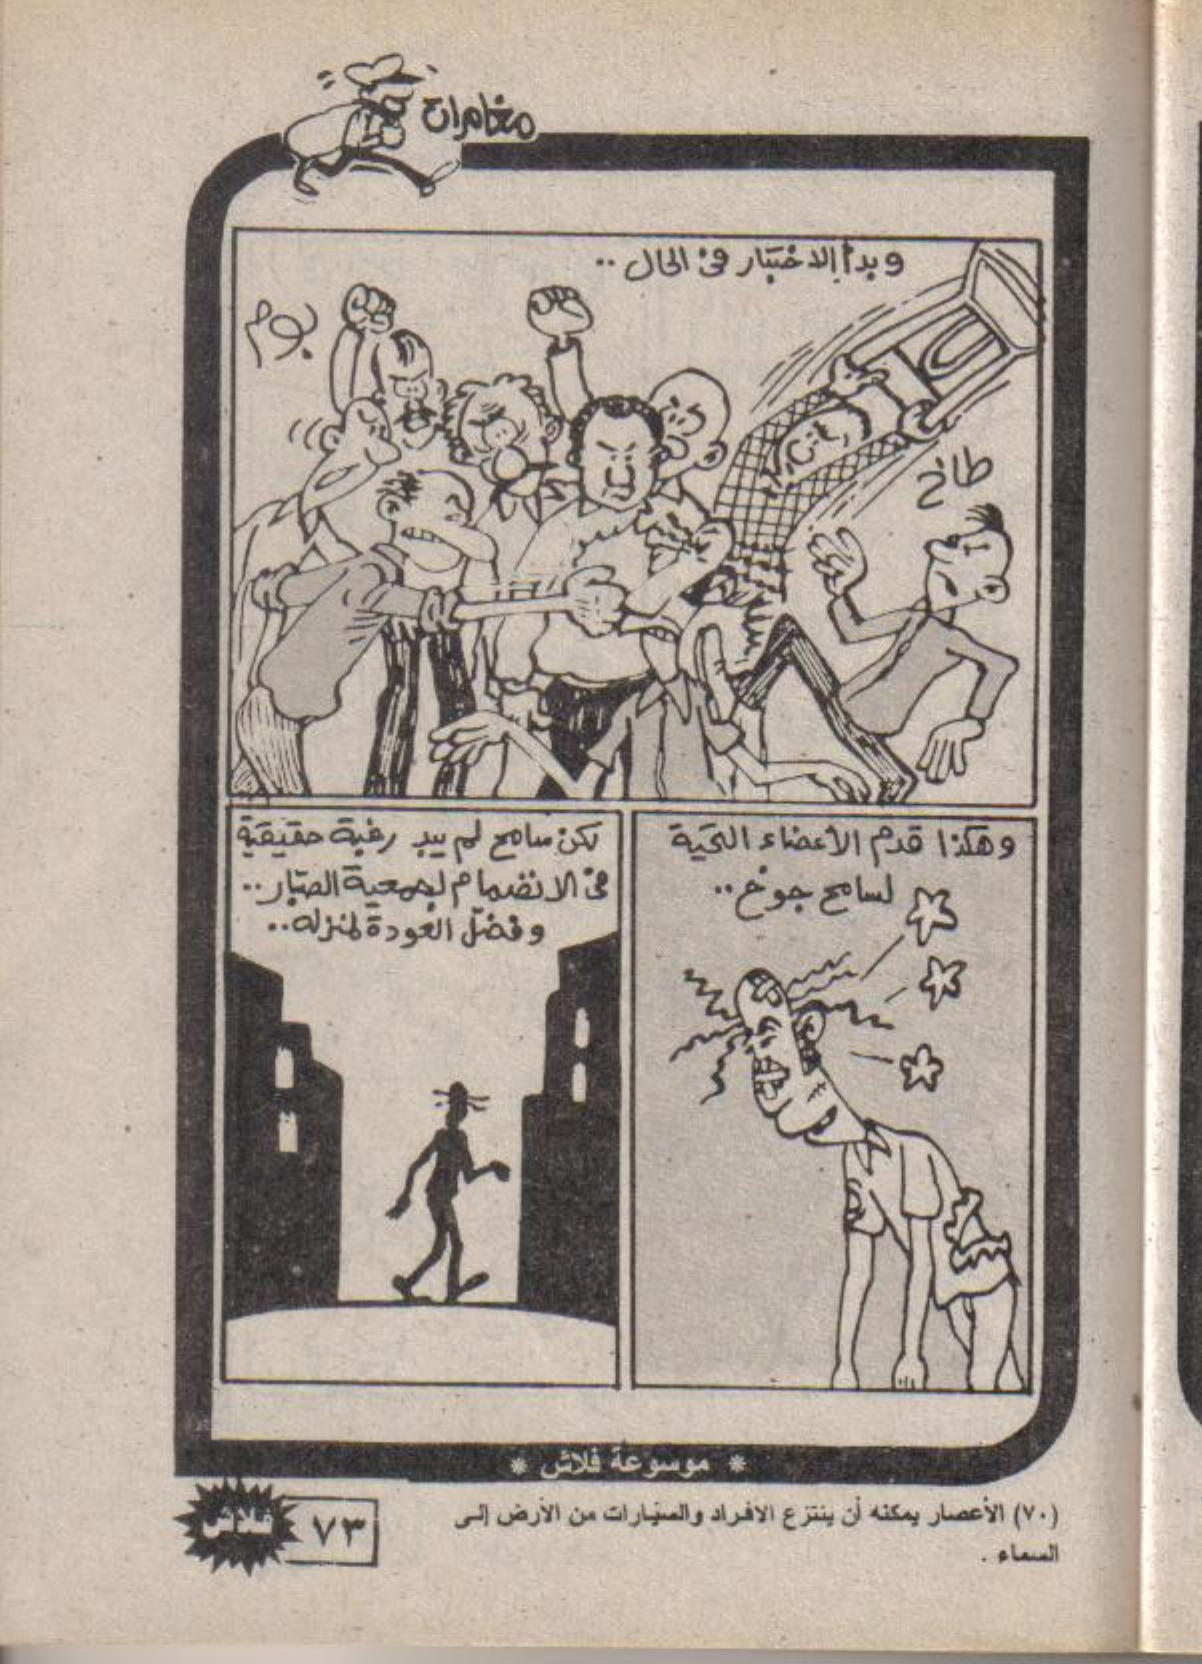 مغامرات
وبدأ الاختبار فى الحال ..
بوم
طاخ
وهكذا قدم الأعضاء التحية
لسامح جوخ ..
لكن سامح لم يبد رغبة حقيقية
فى الانضمام لجمعية الصبار ..
وفضّل العودة لمنزله ..
* موسوعة فلاش *
(٧٠) الأعصار يمكنه أن ينتزع الافراد والسيارات من الأرض إلى
السماء .
٧٣
فلاش